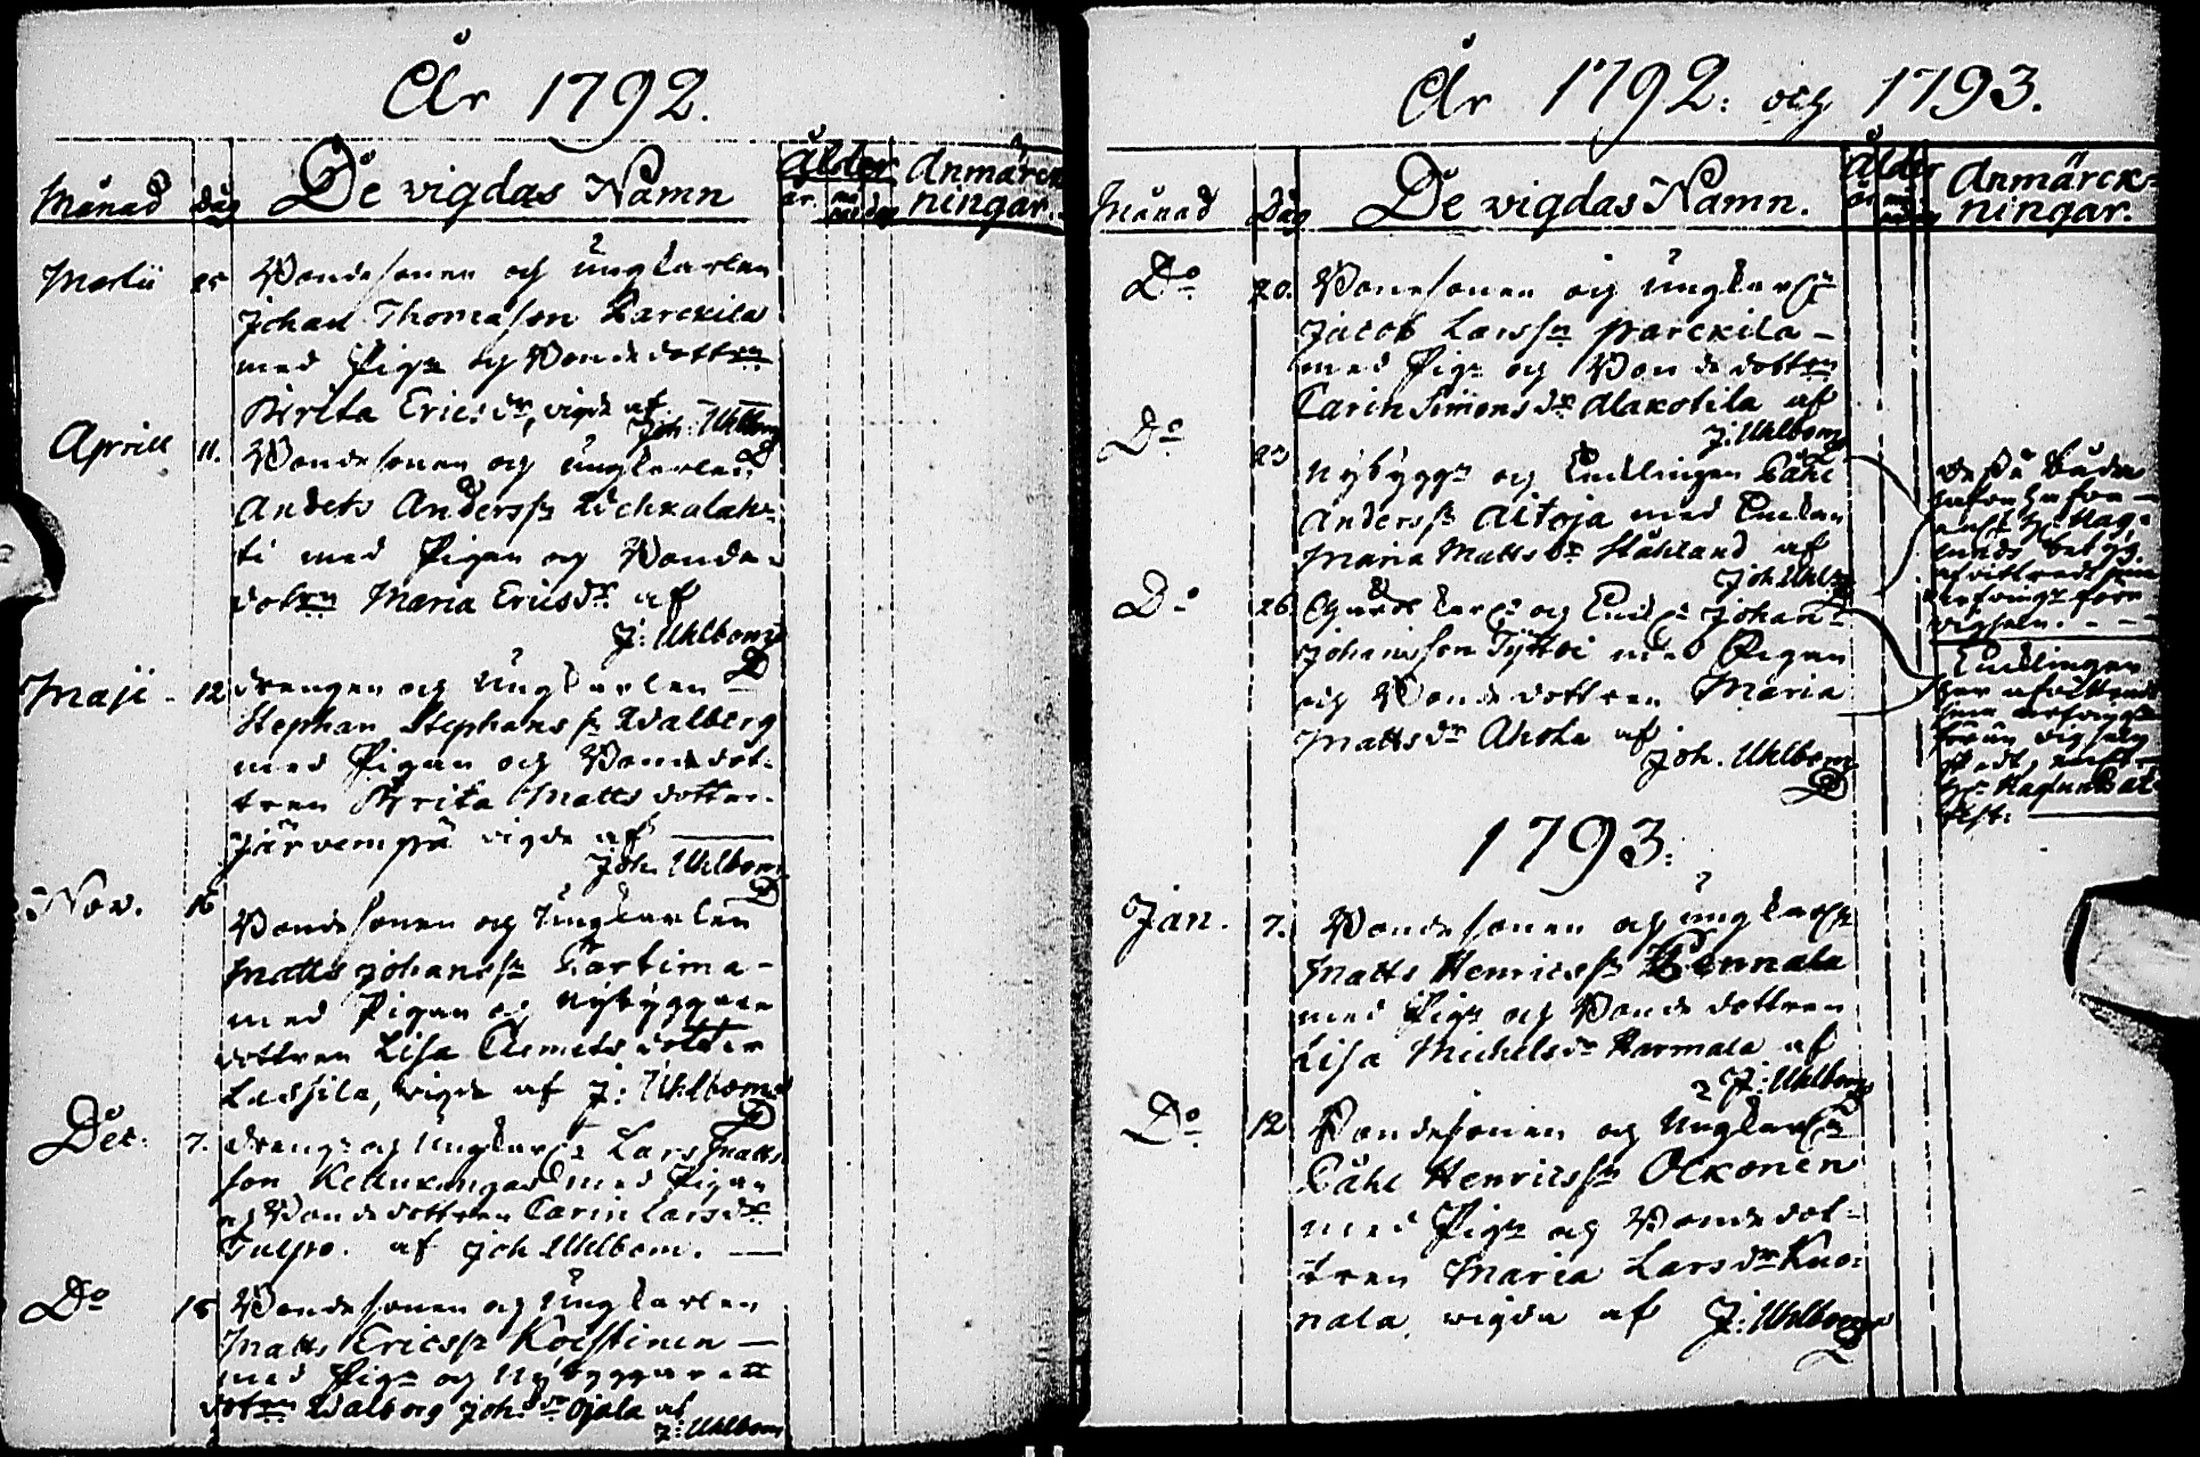 År 1792.
Månad Dag De wigdas Namn Ålder Anmärck
år. må nad dag ningar.
Martii 25 Bondesonen och Ungkarlen
Johan Thomason Karckila
med Pigan och Bondedottren
Brita Ericsdr, vigde af
Joh: Uhlbom
Aprill 11. Bondesonen och Ungkarlen
Anders Anderssn
ti med Pigan och Bonde-
dotren Maria Ericsdr af
J: Uhlbom
Maji - 12 drengen och Ungkarlen
Stephan Stephanssn Walberg
med Pigan och Bondedot-
tren Brita Matts dotter
Järvempä vigde af
Joh. Uhlbom
Nov. 16 Bondesonen och Ungkarlen
Matts Johanssn Partima-
med Pigan och Nybyggare
dottren Lisa Clemets dotter
Lassila, wigde af J: Uhlbom
Dec: 7. dreng: och Ungkarln Lars Matts
son med Pigan
och Bondedottren Carin Larsdr
Tulpo. af Joh Uhlbom.
Do 15 Bondesonen och Ungkarlen
Matts Ericssn Koistinen
med Pign och Nybyggare
dotren Walborg Joh: dr Ojala af
J: Uhlbom
År 1792: och 1793.
Månad Dag De wigdas Namn. Ålder Anmärck-
år må nad dag ningar.
Do 20. Bondesonen och Ungkarln
Jacob Larssn Parckila -
med Pign och Bondedottren
Carin Simonsdr Alakotila af
J: Uhlbom
Do 23 Nybyggn och Enklingen Påhl
Anderssn Aitoja med Enkan
Maria Mattsdr Ståhland af
Joh Uhlbom
Dessa både
hafva
Hag-
lunds betyg
afvittrad
vigseln.
Do 26 och Enkln Johan
Johansson Tyttoi med Pigan
och Bondedottren Maria
Mattsdr Ahola af
Joh. Uhlbom
Enklingen
har afvittrad
sine arfvingar
förän vigseln
skedt,
Hr Haglunds at-
test:
1793:
Jan. 7. Bondesonen och Ungkarln
Matts Henricssn Pennala
med Pign och Bondedottren
Lisa Michelsdr Karmala af
J: Uhlbom
Do 12 Bondesonen och Ungkarln
Påhl Henricssn Olkonen
med Pign och Bondedot-
tren Maria Larsdr Kuo-
nala, wigda af J: Uhlbom